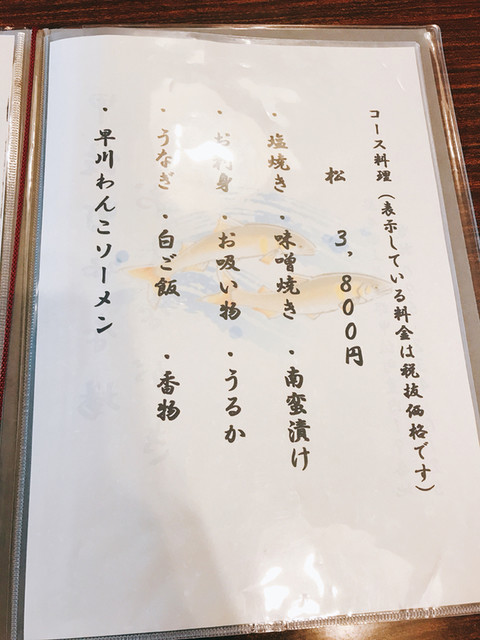 コース料理(表示している料金は税抜価格です)
松 3,800円
・塩焼き・味噌焼き・南蛮漬け
・お刺身・お吸い物・うるか
・うなぎ・白ご飯・香物
・早川わんこソーメン